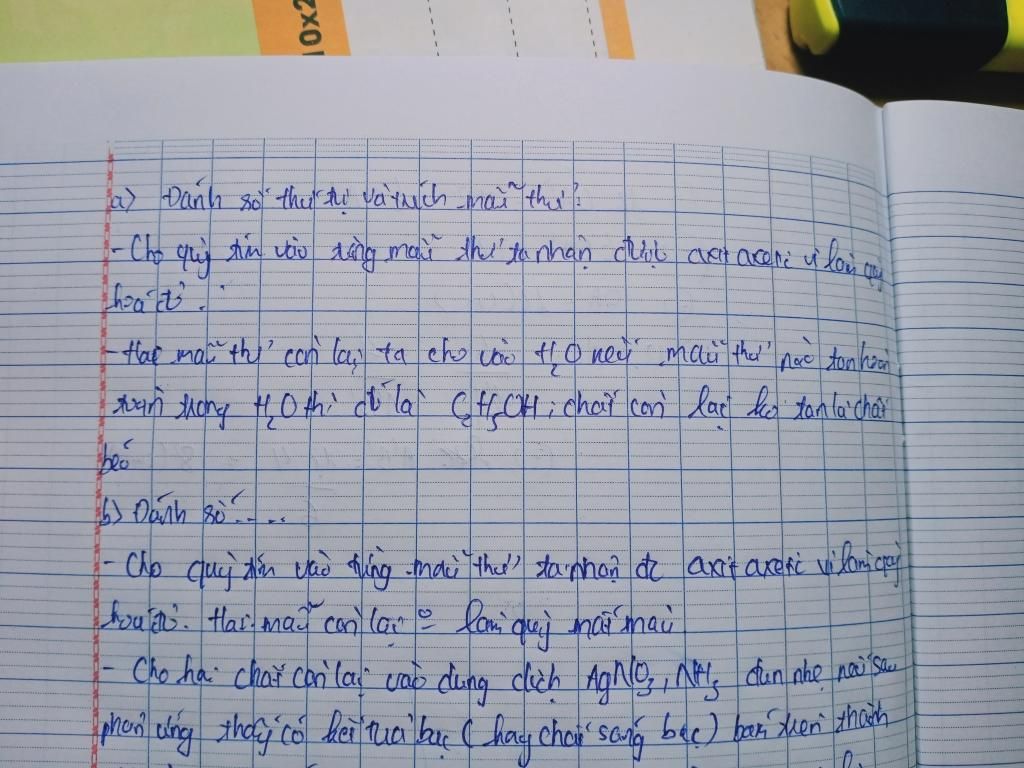 10x2
a) Đánh số thứ tự và trích mẫu thử:
- Cho quỳ tím vào từng mẫu thử ta nhận được axit axetic vì làm quỳ
hoá đỏ.
- Hai mẫu thử còn lại ta cho vào H₂O nếu mẫu thử nào tan hoàn
toàn trong H₂O thì đó là C₂H₅OH; chất còn lại ko tan là chất
béo
b) Đánh số....
- Cho quỳ tím vào từng mẫu thử ta nhận đc axit axetic vì làm quỳ
hoá đỏ. Hai mẫu còn lại làm quỳ mất màu
- Cho hai chất còn lại vào dung dịch AgNO₃, NH₃ đun nhẹ nếu sau
phản ứng thấy có kết tủa bạc (hay chất sáng bạc) bám trên thành